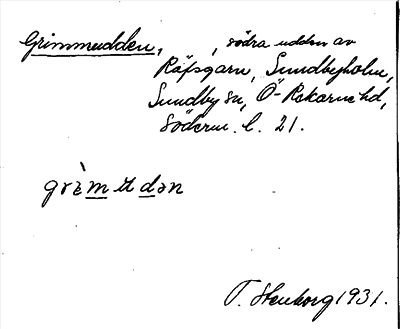 Grimmudden, , södra udden av
Räfsgarn, Sundbyholm,
Sundby sn, Ö-Rekarne hd,
Söderm. l. 21.
grèmudən
T. Stenborg 1931.